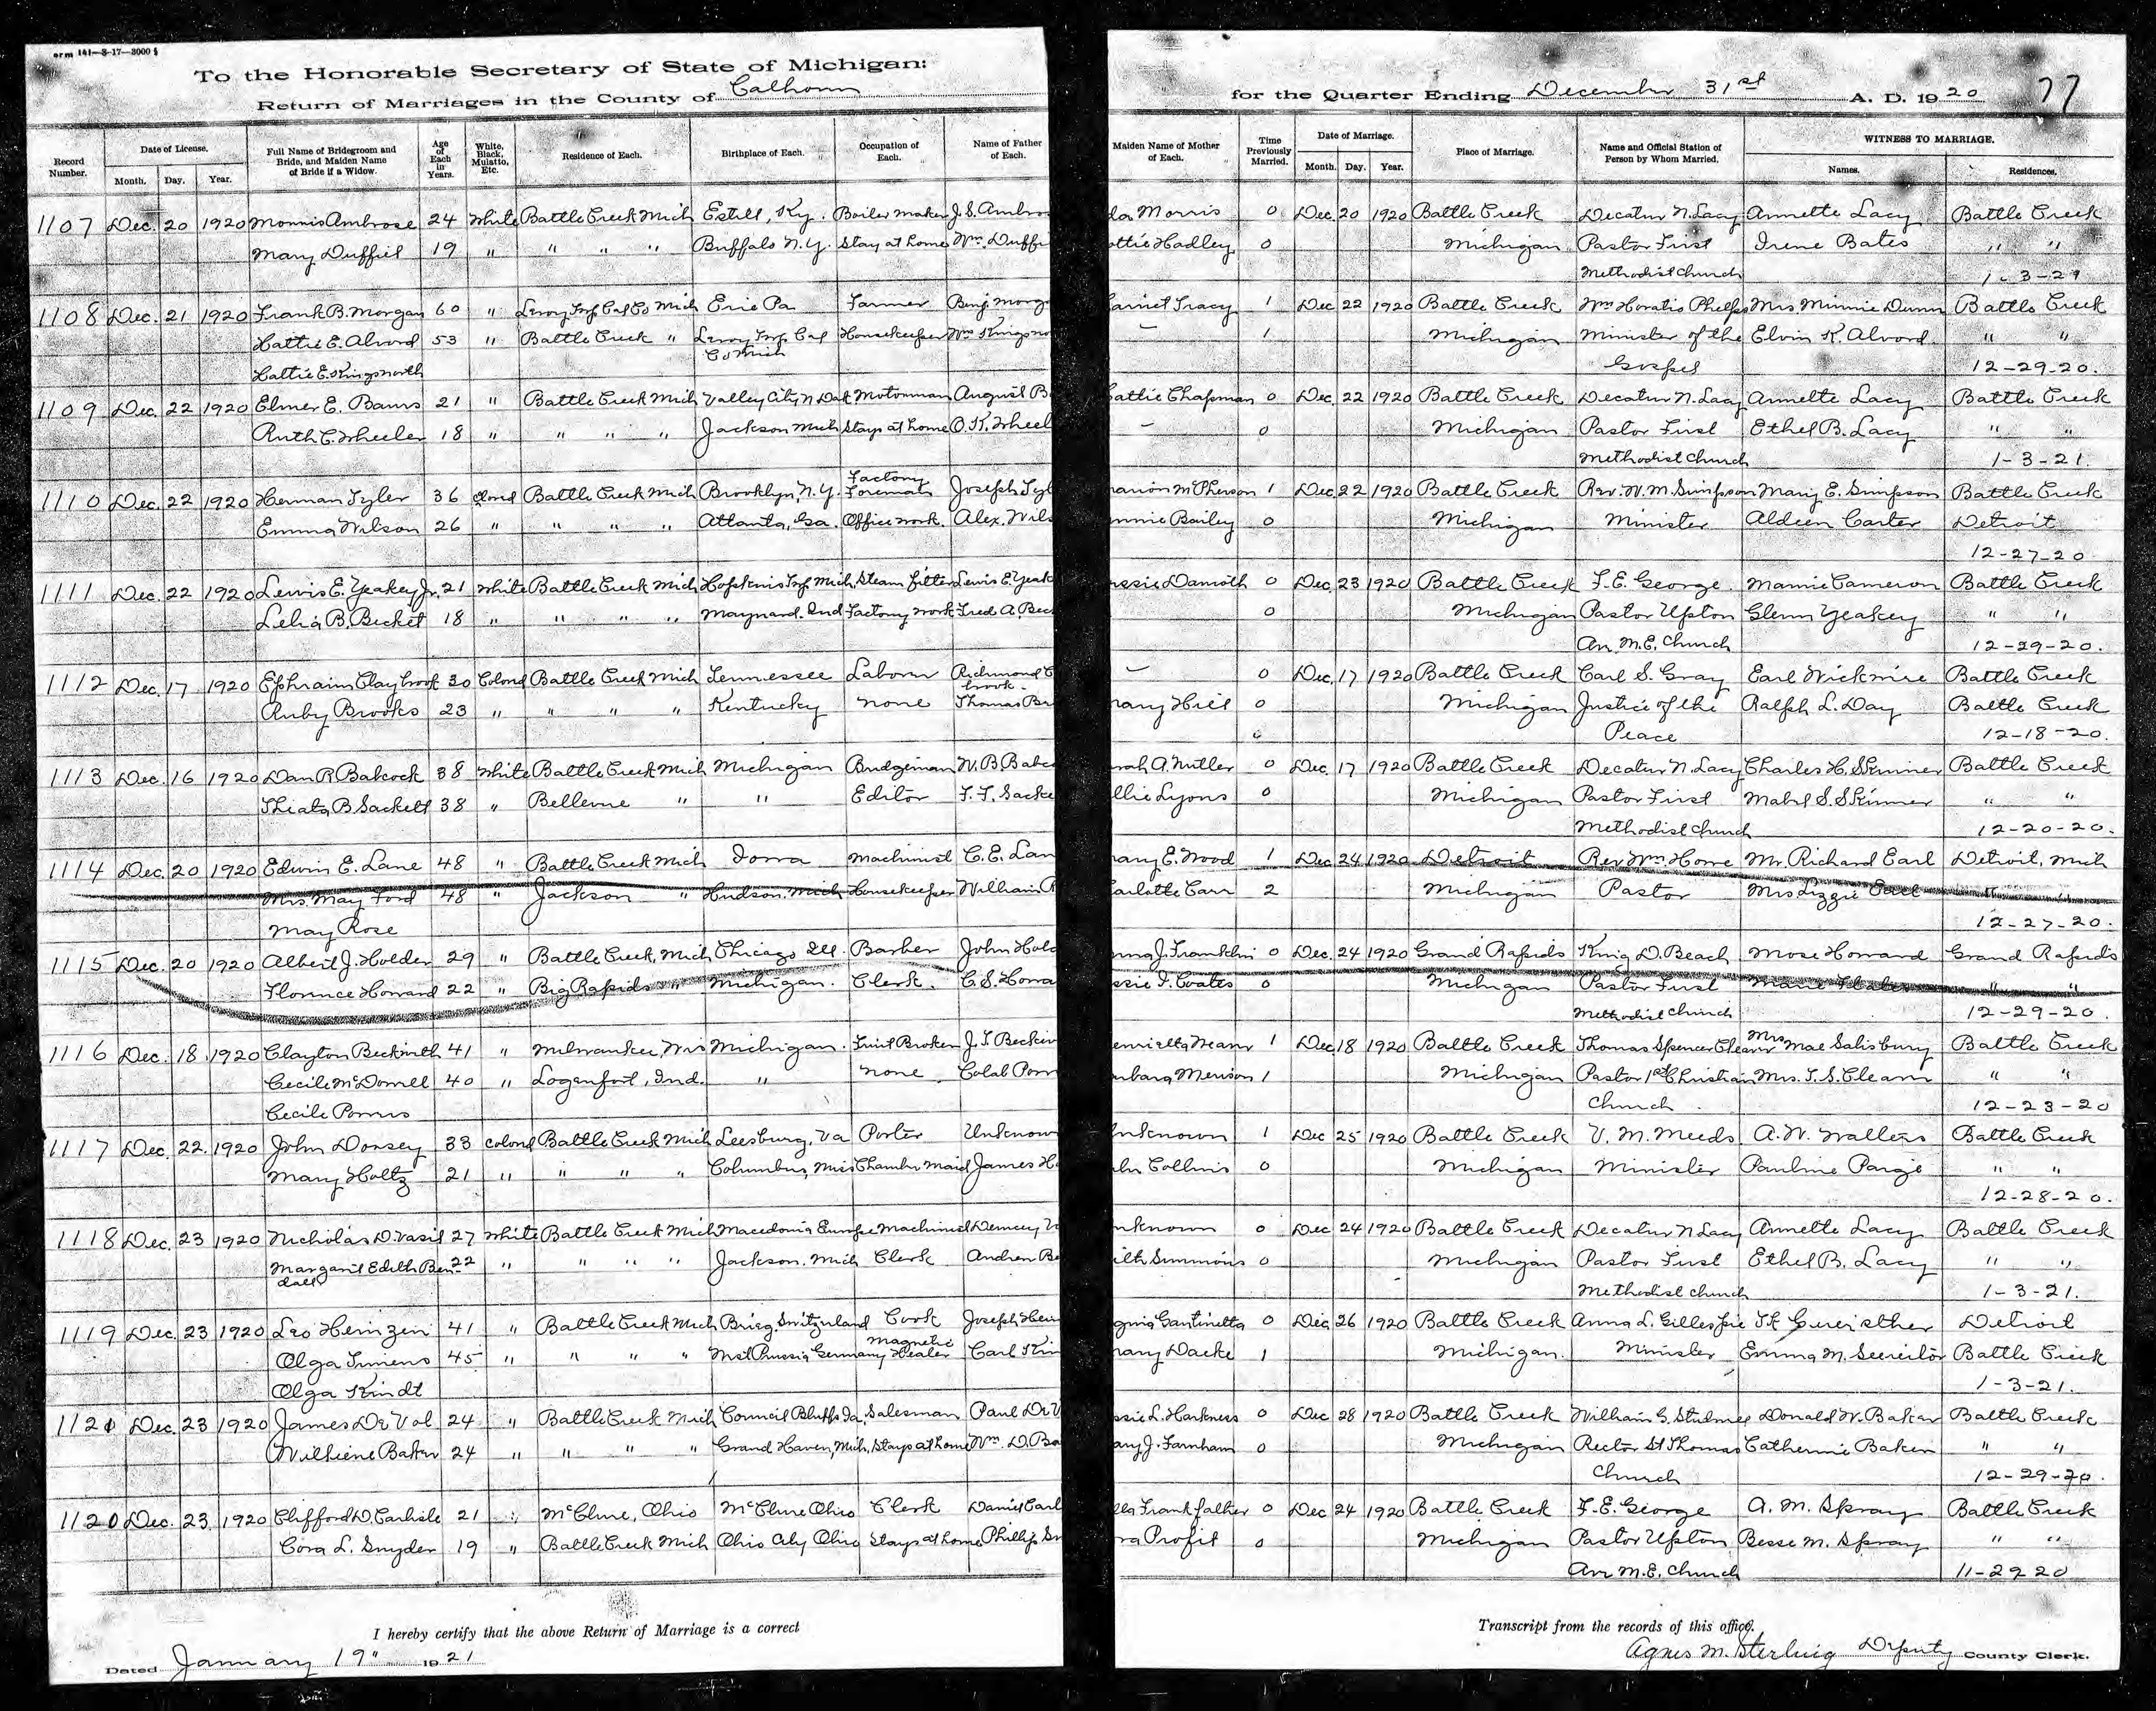 orm 141—8-17—3000
To the Honorable Secretary of State of Michigan:
Return of Marriages in the County of Calhoun
for the Quarter Ending December 31st A. D. 19 20 77
Record Number. Date of License. Month. Day. Year. Full Name of Bridegroom and Bride, and Maiden Name of Bride if a Widow. Age of Each in Years. White, Black, Mulatto, Etc. Residence of Each. Birthplace of Each. Occupation of Each. Name of Father of Each. Maiden Name of Mother of Each. Time Previously Married. Date of Marriage. Month. Day. Year. Place of Marriage. Name and Official Station of Person by Whom Married. WITNESS TO MARRIAGE. Names. Residences.
1107 Dec. 20 1920 Morris Ambrose 24 White Battle Creek Mich Estill, Ky. Boiler maker J. S. Ambro Morris 0 Dec. 20 1920 Battle Creek Decatur N. Lacy Annette Lacy Battle Creek
Mary Duffiel 19 " " " " Buffalo N.Y. Stay at home Wm. Duffi ottie Hadley 0 Michigan Pastor First Irene Bates " "
Methodist Church 1-3-21
1108 Dec. 21 1920 Frank B. Morgan 60 " Leroy Twp Cal Co Mich Erie Pa Farmer Benj. Morg arriet Tracy 1 Dec 22 1920 Battle Creek Wm Horatio Phelps Mrs Minnie Dunn Battle Creek
Hattie E. Alvord 53 " Battle Creek " Leroy Twp Cal Housekeeper Wm Kingsno — 1 Michigan Minister of the Elvin K. Alvord " "
Co Mich
Hattie E. Kingsnorth Gospel 12-29-20.
1109 Dec. 22 1920 Elmer E. Baurs 21 " Battle Creek Mich Valley City N Dak Motorman August B attie Chapman 0 Dec. 22 1920 Battle Creek Decatur N. Lacy Annette Lacy Battle Creek
Ruth C. Wheeler 18 " " " " Jackson Mich Stays at home O. K. Wheel — 0 Michigan Pastor First Ethel B. Lacy " "
Methodist Church 1-3-21.
Factory
1110 Dec. 22 1920 Herman Tyler 36 Colored Battle Creek Mich Brooklyn, N.Y. Foreman Joseph Tyl arion McPherson 1 Dec. 22 1920 Battle Creek Rev. W. M. Simpson Mary E. Simpson Battle Creek
Emma Wilson 26 " " " " Atlanta, Ga. Office work. Alex. Wils nnie Bailey 0 Michigan Minister Aldeen Carter Detroit
12-27-20
1111 Dec. 22 1920 Lewis E. Yeakey Jr. 21 White Battle Creek Mich Hopkins Twp Mich. Steam fitter Lewis E. Yeak essie Damoth 0 Dec 23 1920 Battle Creek F. E. George Mamie Cameron Battle Creek
Lelia B. Becket 18 " " " " Maynard. Ind Factory work Fred A. Bec 0 Michigan Pastor Upton Glenn Yeakey " "
Av. M. E. Church 12-29-20.
1112 Dec. 17 1920 Ephraim Claybrook 30 Colored Battle Creek Mich Tennessee Laborer Richmond C — 0 Dec. 17 1920 Battle Creek Carl S. Gray Earl Wickmire Battle Creek
brook.
Ruby Brooks 23 " " " " Kentucky none Thomas Br ary Hill 0 Michigan Justice of the Ralph L. Day Battle Creek
Peace 12-18-20.
1113 Dec. 16 1920 Dan R Babcock 38 White Battle Creek Mich Michigan Bridgeman W. B. Babc rah A. Miller 0 Dec. 17 1920 Battle Creek Decatur N. Lacy Charles H. Skinner Battle Creek
B Sackett 38 " Bellevue " " Editor F. F. Sacke llie Lyons 0 Michigan Pastor First Mabel S. Skinner " "
Methodist Church 12-20-20.
1114 Dec. 20 1920 Edwin E. Lane 48 " Battle Creek Mich Iowa Machinist C. E. Lan ary E. Wood 1 Dec 24 1920 Detroit Rev Wm. Howe Mr. Richard Earl Detroit, Mich
Mrs. May Ford 48 " Jackson " Hudson. Mich Housekeeper William R arlotte Carr 2 Michigan Pastor Mrs. Lizzie Earl " "
May Rose 12-27-20.
1115 Dec. 20 1920 Albert J. Holder 29 " Battle Creek, Mich Chicago Ill. Barber John Hold nna J. Franklin 0 Dec. 24 1920 Grand Rapids King D. Beach Mose Howard Grand Rapids
Florence Howard 22 " Big Rapids " Michigan. Clerk. C. S. Howa ssie F. Coates 0 Michigan Pastor First Marie " "
Methodist Church 12-29-20.
1116 Dec. 18 1920 Clayton Beckwith 41 " Milwaukee Wis Michigan. Fruit Broker J. T. Beckw enrietta Mann 1 Dec 18 1920 Battle Creek Thomas Spencer Cleaver Mrs Mae Salisbury Battle Creek
Cecile McDowell 40 " Logansport, Ind. " none Calab Pow rbara Merison 1 Michigan Pastor 1st Christian Mrs. T. S. Cleaver " "
Cecile Powers Church 12-23-20
1117 Dec. 22. 1920 John Dorsey 33 Colored Battle Creek Mich Leesburg, Va Porter Unknown Unknown 1 Dec 25 1920 Battle Creek V. M. Meeds A. W. Wallers Battle Creek
Mary Holtz 21 " " " " Columbus, Miss Chamber maid James H Collins 0 Michigan Minister Pauline Paige " "
12-28-20.
1118 Dec. 23 1920 Nicholas D. Vasil 27 White Battle Creek Mich Macedonia Europe Machinist V nknown 0 Dec 24 1920 Battle Creek Decatur N Lacy Annette Lacy Battle Creek
Margaret Edith Ben- 22 " " " " Jackson. Mich Clerk Andrew Be ith Simmons 0 Michigan Pastor First Ethel B. Lacy " "
dall Methodist Church 1-3-21.
1119 Dec. 23 1920 Leo Heinzen 41 " Battle Creek Mich Brieg, Switzerland Cook Joseph Hein 0 Dec. 26 1920 Battle Creek Anna L. Gillespie Detroit
magnetic
Olga Simens 45 " " " " West Prussia Germany Healer Carl Kin ary Dacke 1 Michigan. Minister Emma M. Battle Creek
Olga Kindt 1-3-21.
1120 Dec. 23 1920 James DeVol 24 " Battle Creek Mich Council Bluffs Ia. Salesman Paul DeV ssie L. Harkness 0 Dec 28 1920 Battle Creek William G. Donald W. Baker Battle Creek
Baker 24 " " " " Grand Haven, Mich, Stays at home Wm. D. Ba ary J. Farnham 0 Michigan Rector St Thomas Catherine Baker " "
Church 12-29-20.
1120 Dec. 23 1920 Clifford D. Carlisle 21 " McClure, Ohio McClure Ohio Clerk Daniel Carl lla Frankfather 0 Dec 24 1920 Battle Creek F. E. George A. M. Spray Battle Creek
Cora L. Snyder 19 " Battle Creek Mich Ohio City Ohio Stays at home Phillip Sn ra Profit 0 Michigan Pastor Upton Besse M. Spray " "
Av M. E. Church 11-29 20
I hereby certify that the above Return of Marriage is a correct Transcript from the records of this office.
Dated January 19" 1921 Agnes M. Sterling Deputy County Clerk.